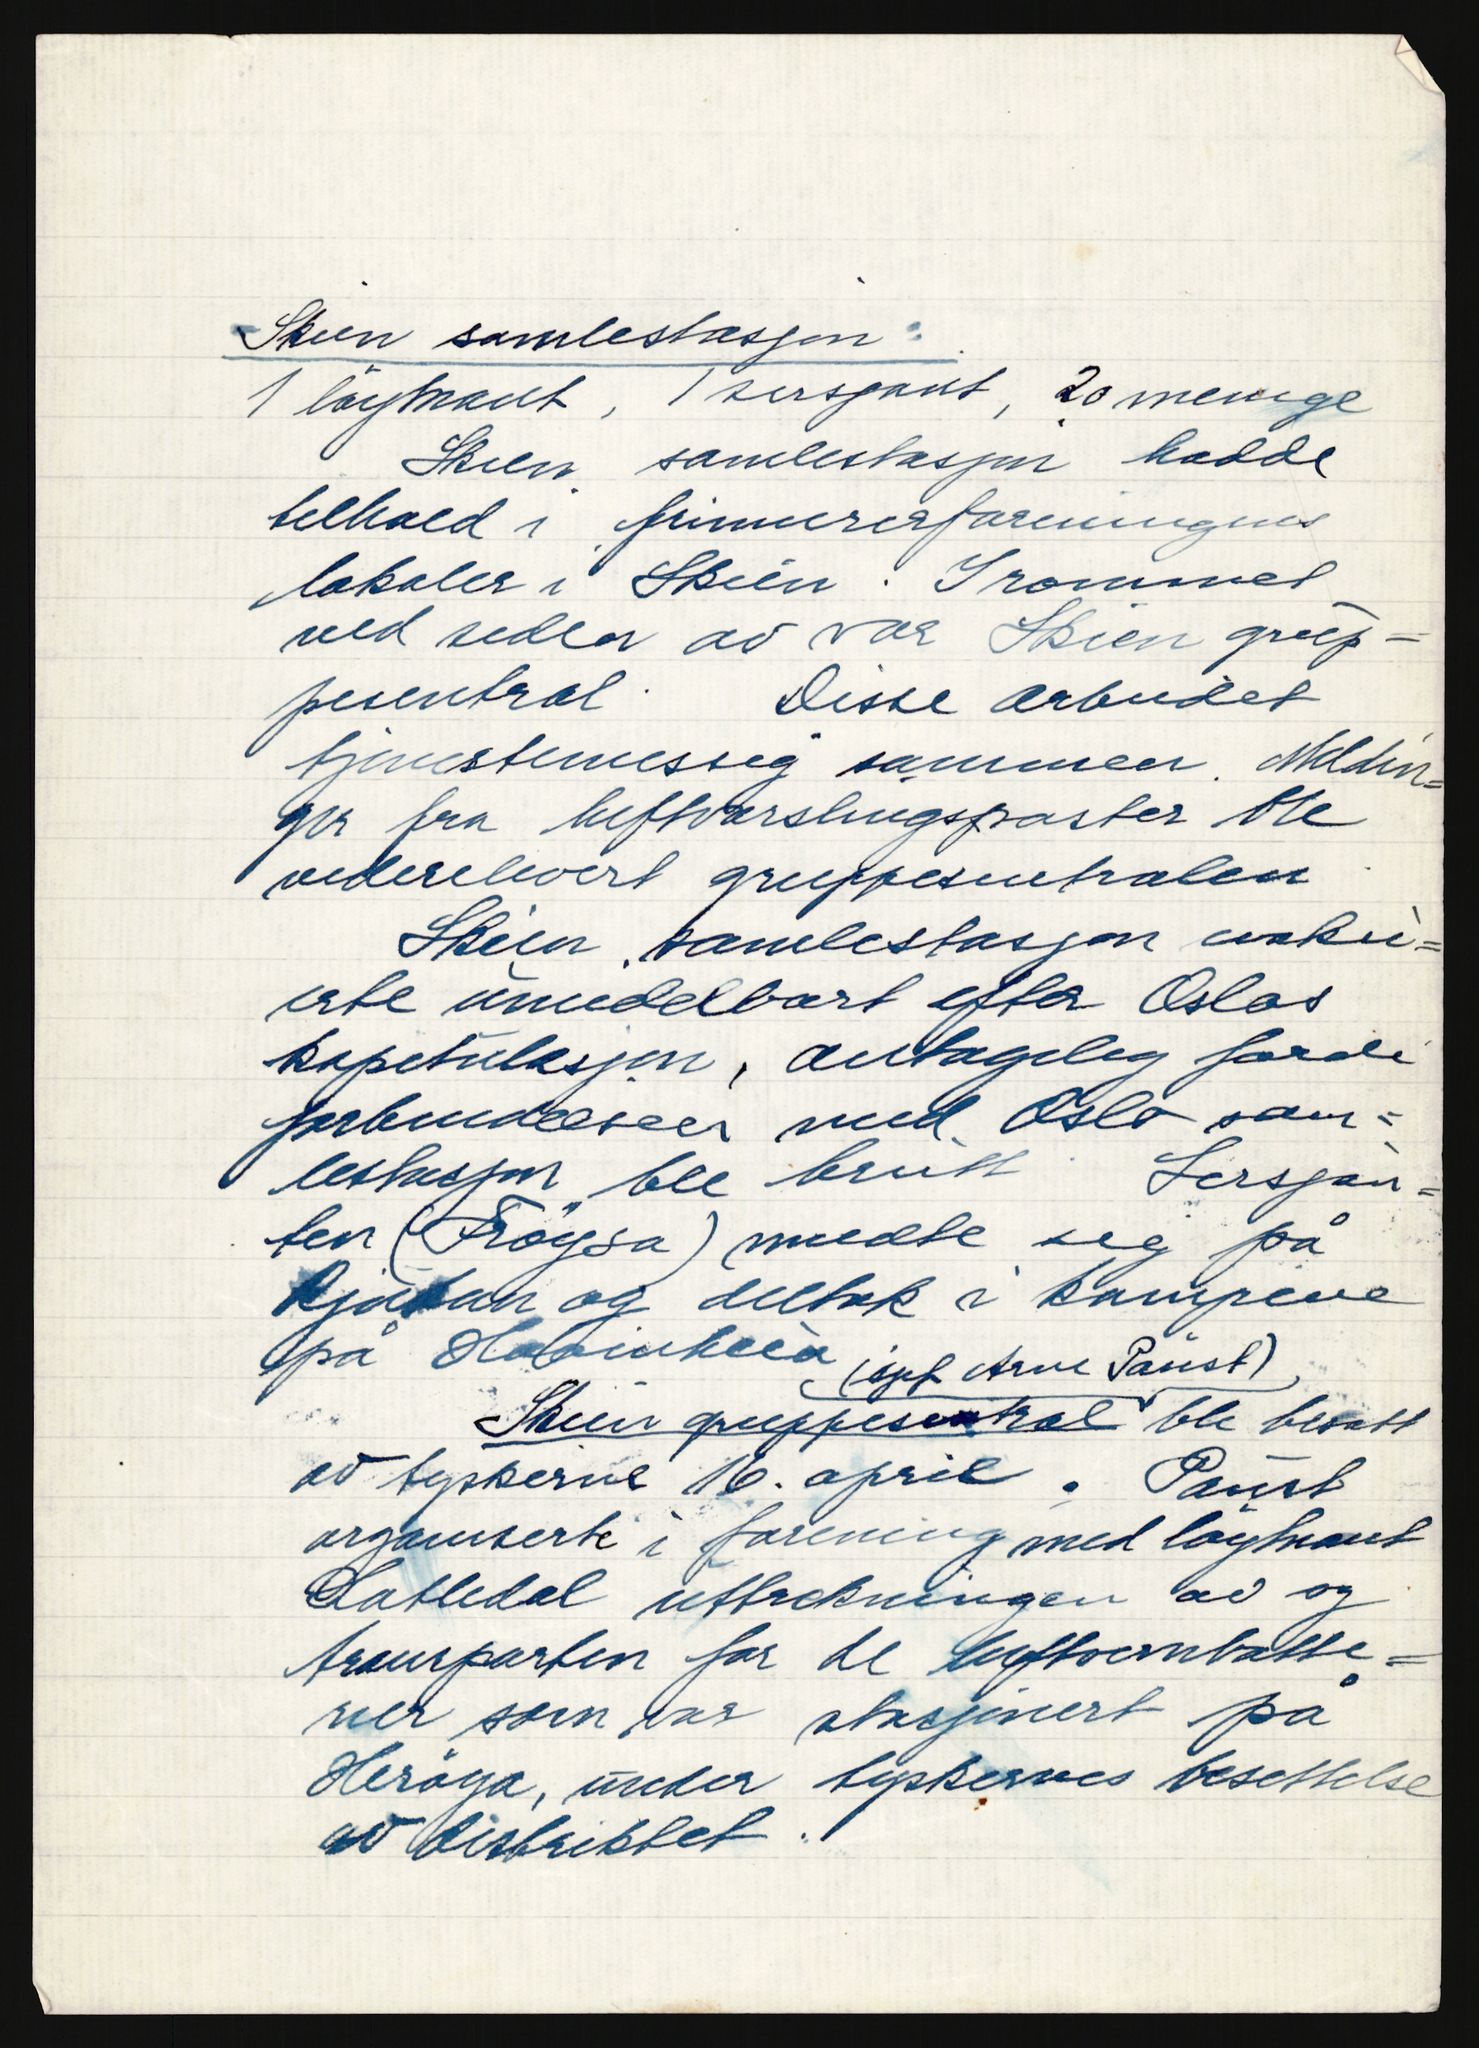 Skien samlestasjon:
1 löytnant, 1 sersjant, 20 menige
Skien samlestasjon hadde
tilhold i frimurerforeningens
lokaler i Skien. I rommet
ved siden av var Skien grup-
pesentral. Disse arbeidet
tjenestemessig sammen. Meldin=
ger fra luftvarslingsposter ble
viderelevert gruppesentralen
Skien samlestasjon evaku=
erte umiddelbart efter Oslos
kapitulasjon, antagelig fordi
forbindelsen med Oslo sam=
lestasjon ble brutt. Sersjan=
ten (Fröysa) meldte seg på
Rjukan og deltok i kampene
på
(sjef Arne Paust)
Skien gruppesentral ble besatt
av tyskerne 16. april. Paust
organiserte i forening med löytnant
Latledal uttrekningen av og
transporten for de luftvernbatte=
rier som var stasjonert på
Heröya, under tyskernes besettelse
av distriktet.